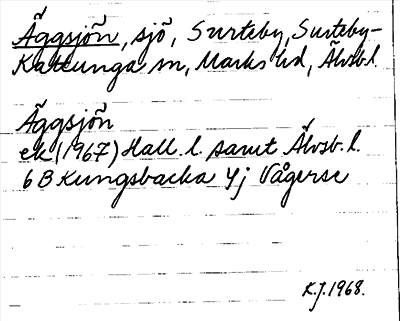 Äggsjön, sjö, Surteby, Surteby-
Kattunga sn, Marks hd, Älvsb. l
Äggsjön
ek (1967) Hall. l. samt Älvsb. l.
6 B Kungsbacka 4j Vågerse
K.J. 1968.